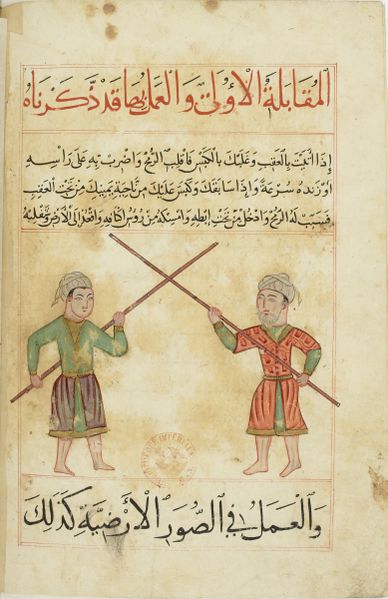 المقابلة الأولى والعمل بها قد ذكرناه
إذا أتيت بالعقب وغلبك بالكبس فاقلب الرمح واضرب به على راسه
أو زنده سرعة وإذا سابقك وكبس عليك من ناحية يمينك من تحت العقب
فسيب له الرمح وادخل من تحت ابطه وامسكه من روس اكتافه إلى الأرض وتقلبه
والعمل في الصور الأرضية كذلك